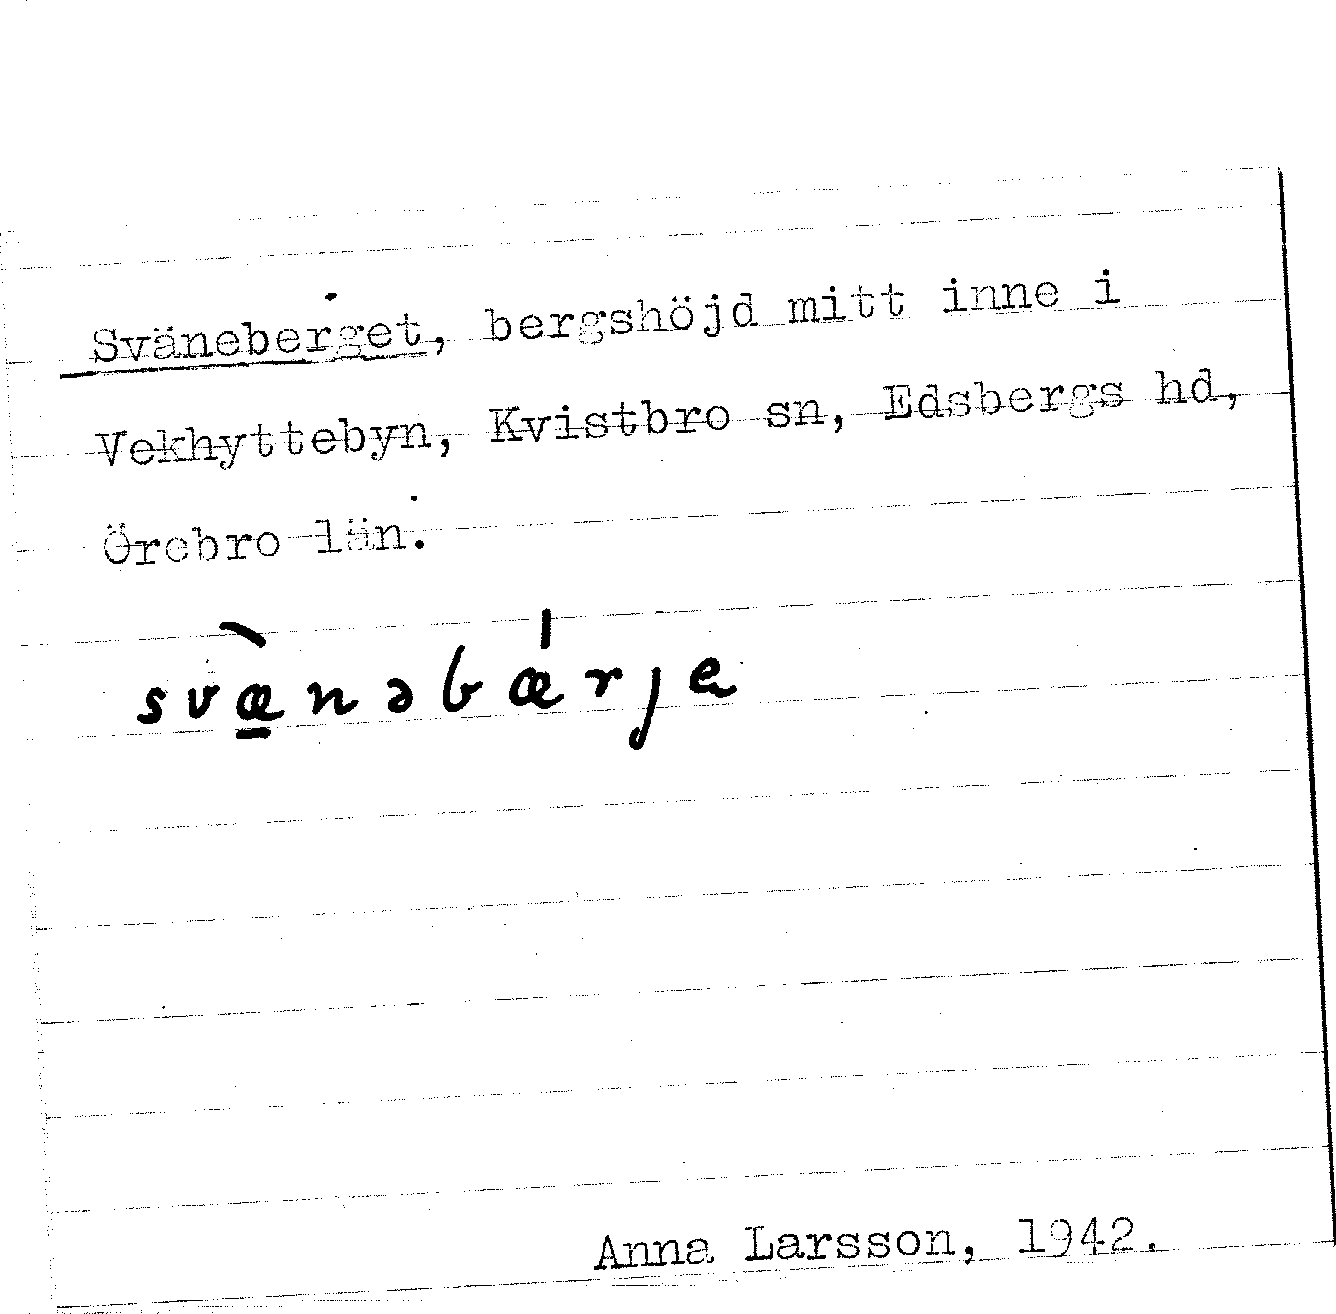 Sväneberget, bergshöjd mitt inne i
Vekhyttebyn, Kvistbro sn, Edsbergs hd,
Örebro län.
svæ̠̀nəbǽrje
Anna Larsson, 1942.